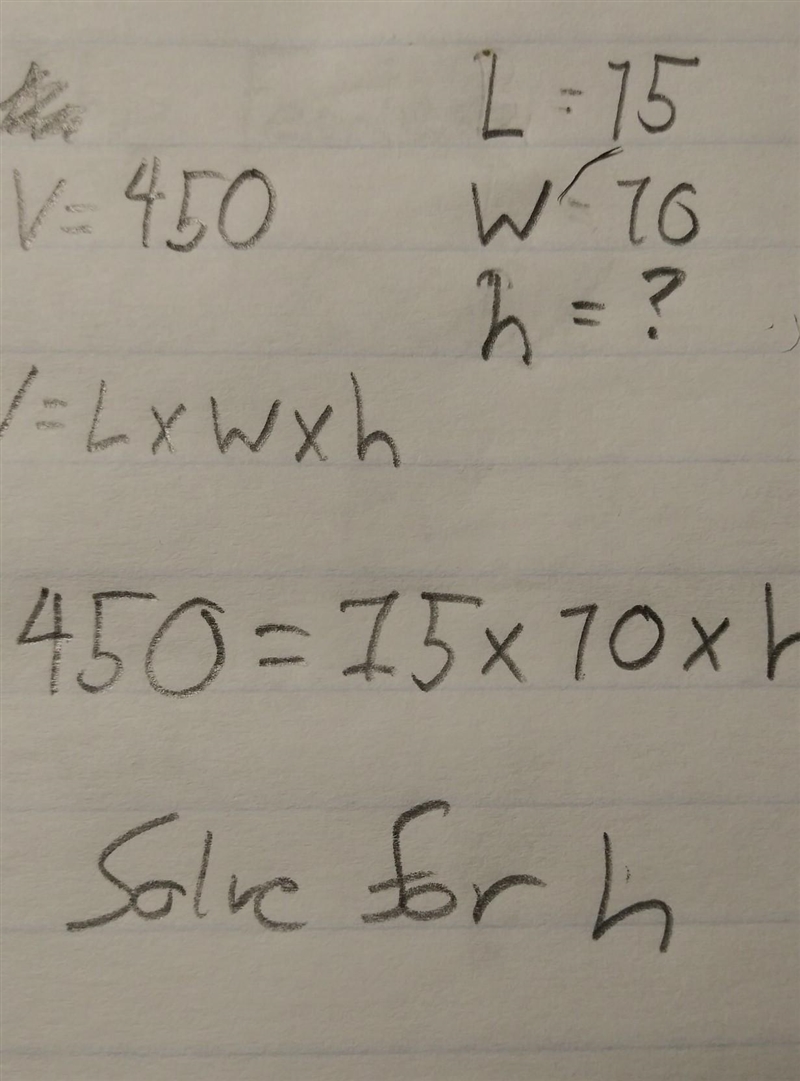 L = 15
V = 450
W = 10
h = ?
V = L x W x h
450 = 15 x 10 x h
Solve for h